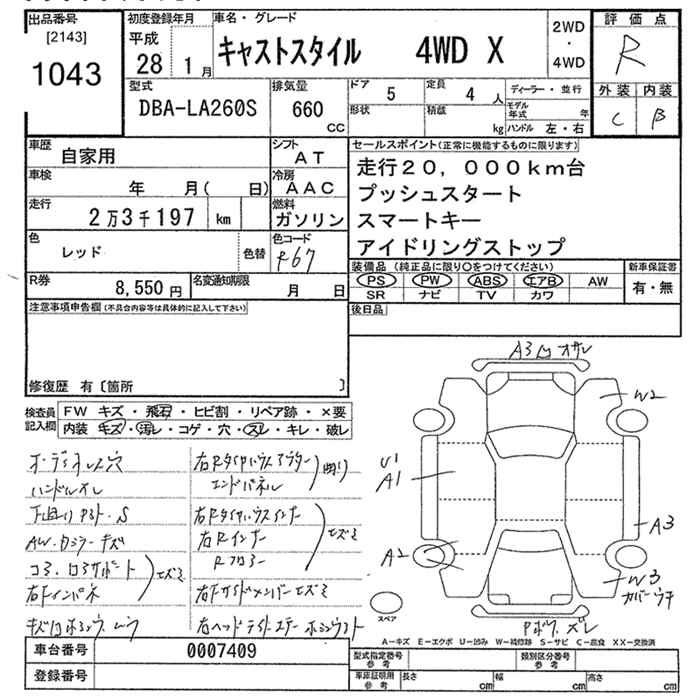 出品番号
[2143]
1043
初度登録年月
平成
28 1月
車名・グレード
キャストスタイル 4WD X
2WD
・
4WD
評価点
R
外装 内装
C B
型式
DBA-LA260S
排気量
660
CC
ドア 5
形状
定員 4 人
積載 kg
ディーラー・並行
モデル年式 年
ハンドル 左・右
車歴
自家用
シフト
AT
車検
年 月( 日)
冷房
AAC
走行
2万3千197 km
燃料
ガソリン
色
レッド
色替
色コード
R67
R券
8,550円
名変通知期限
月 日
セールスポイント(正常に機能するものに限ります)
走行20,000km台
プッシュスタート
スマートキー
アイドリングストップ
装備品(純正品に限り○をつけてください)
PS PW ABS エアB AW
SR ナビ TV カワ
新車保証書
有・無
後日品
注意事項申告欄(不具合内容等は具体的に記入して下さい)
修復歴 有〔箇所 〕
検査員記入欄
FW キズ・飛石・ヒビ割・リペア跡・×要
内装 キズ・汚レ・コゲ・穴・スレ・キレ・破レ
オーディオレス穴
ハンドルスレ
下廻り サビ・S
AW・カラーキズ
コアサポート
右Fインパネ
右Rタイヤハウスアウター
エンドパネル
右Rタイヤハウスインナー
右Rインナー
Rフロアー
右Fサイドメンバー
A3
W2
U1
A1
A3
A2
W3
スペア
A-キズ E-エクボ U-凹み W-補修跡 S-サビ C-腐食 XX-交換済
車台番号
0007409
登録番号
型式指定番号
参考
類別区分番号
参考
車庫証明用
参考
長さ cm
幅 cm
高さ cm